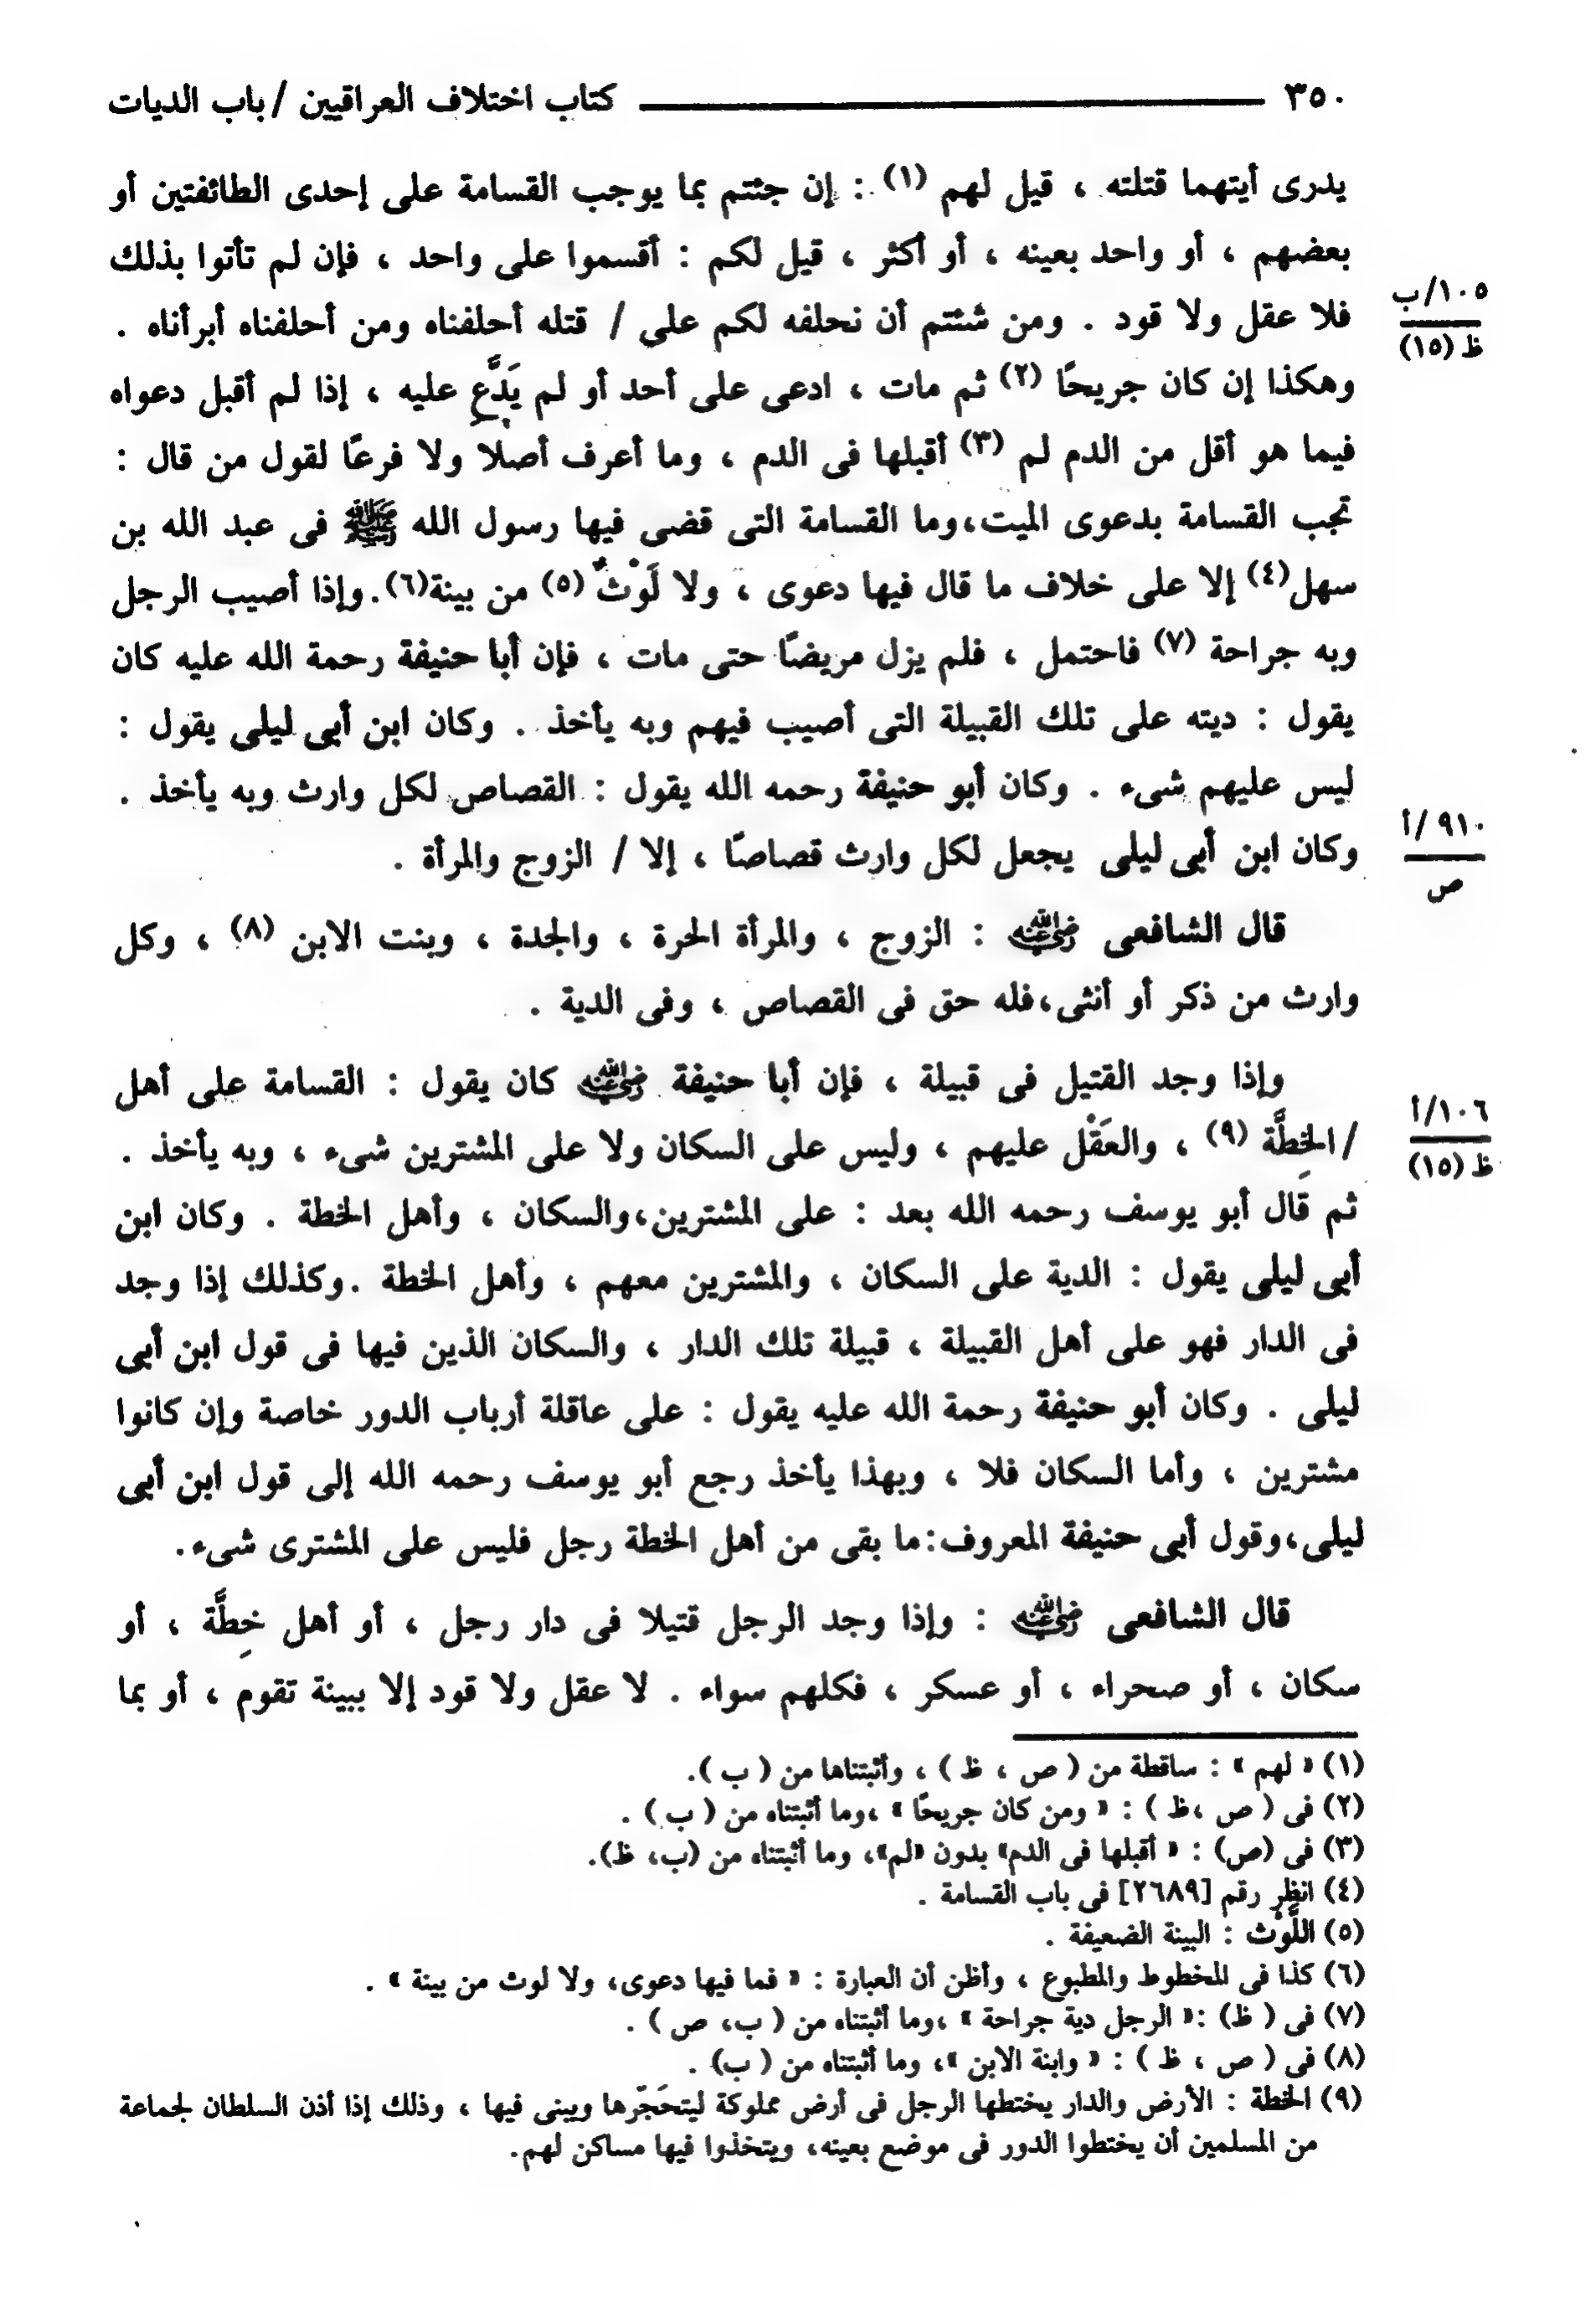 ٣٥٠ كتاب اختلاف العراقيين / باب الديات
يدرى أيتهما قتلته ، قيل لهم (١) : إن جئتم بما يوجب القسامة على إحدى الطائفتين أو
بعضهم ، أو واحد بعينه ، أو أكثر ، قيل لكم : أقسموا على واحد ، فإن لم تأتوا بذلك
فلا عقل ولا قود . ومن شئتم أن نحلفه لكم على / قتله أحلفناه ومن أحلفناه أبرأناه .
١٠٥/ب
ظ (١٥)
وهكذا إن كان جريحًا (٢) ثم مات ، ادعى على أحد أو لم يَدَّعِ عليه ، إذا لم أقبل دعواه
فيما هو أقل من الدم لم (٣) أقبلها فى الدم ، وما أعرف أصلا ولا فرعًا لقول من قال :
تجب القسامة بدعوى الميت،وما القسامة التى قضى فيها رسول الله ﷺ فى عبد الله بن
سهل(٤) إلا على خلاف ما قال فيها دعوى ، ولا لَوْثٌ (٥) من بينة(٦).وإذا أصيب الرجل
وبه جراحة (٧) فاحتمل ، فلم يزل مريضًا حتى مات ، فإن أبا حنيفة رحمة الله عليه كان
يقول : ديته على تلك القبيلة التى أصيب فيهم وبه يأخذ . وكان ابن أبى ليلى يقول :
ليس عليهم شىء . وكان أبو حنيفة رحمه الله يقول : القصاص لكل وارث وبه يأخذ .
وكان ابن أبى ليلى يجعل لكل وارث قصاصًا ، إلا / الزوج والمرأة .
٩١٠/أ
ص
قال الشافعى رضي الله عنه : الزوج ، والمرأة الحرة ، والجدة ، وبنت الابن (٨) ، وكل
وارث من ذكر أو أنثى،فله حق فى القصاص ، وفى الدية .
وإذا وجد القتيل فى قبيلة ، فإن أبا حنيفة رضي الله عنه كان يقول : القسامة على أهل
/الخِطَّة (٩) ، والعَقْل عليهم ، وليس على السكان ولا على المشترين شىء ، وبه يأخذ .
١٠٦/أ
ظ (١٥)
ثم قال أبو يوسف رحمه الله بعد : على المشترين،والسكان ، وأهل الخطة . وكان ابن
أبى ليلى يقول : الدية على السكان ، والمشترين معهم ، وأهل الخطة .وكذلك إذا وجد
فى الدار فهو على أهل القبيلة ، قبيلة تلك الدار ، والسكان الذين فيها فى قول ابن أبى
ليلى . وكان أبو حنيفة رحمة الله عليه يقول : على عاقلة أرباب الدور خاصة وإن كانوا
مشترين ، وأما السكان فلا ، وبهذا يأخذ رجع أبو يوسف رحمه الله إلى قول ابن أبى
ليلى،وقول أبى حنيفة المعروف:ما بقى من أهل الخطة رجل فليس على المشترى شىء.
قال الشافعى رضي الله عنه : وإذا وجد الرجل قتيلا فى دار رجل ، أو أهل خِطَّة ، أو
سكان ، أو صحراء ، أو عسكر ، فكلهم سواء . لا عقل ولا قود إلا ببينة تقوم ، أو بما
(١) « لهم » : ساقطة من ( ص ، ظ ) ، وأثبتناها من ( ب ).
(٢) فى ( ص ،ظ ) : « ومن كان جريحًا » ،وما أثبتناه من ( ب ) .
(٣) فى (ص) : « أقبلها فى الدم» بدون «لم»، وما أثبتناه من (ب، ظ).
(٤) انظر رقم [٢٦٨٩] فى باب القسامة .
(٥) اللَّوْث : البينة الضعيفة .
(٦) كذا فى المخطوط والمطبوع ، وأظن أن العبارة : « فما فيها دعوى، ولا لوث من بينة » .
(٧) فى ( ظ) :« الرجل دية جراحة » ،وما أثبتناه من ( ب، ص ) .
(٨) فى ( ص ، ظ ) : « وابنة الابن »، وما أثبتناه من ( ب) .
(٩) الخطة : الأرض والدار يختطها الرجل فى أرض مملوكة ليتحَجّرها ويبنى فيها ، وذلك إذا أذن السلطان لجماعة
من المسلمين أن يختطوا الدور فى موضع بعينه، ويتخذوا فيها مساكن لهم.